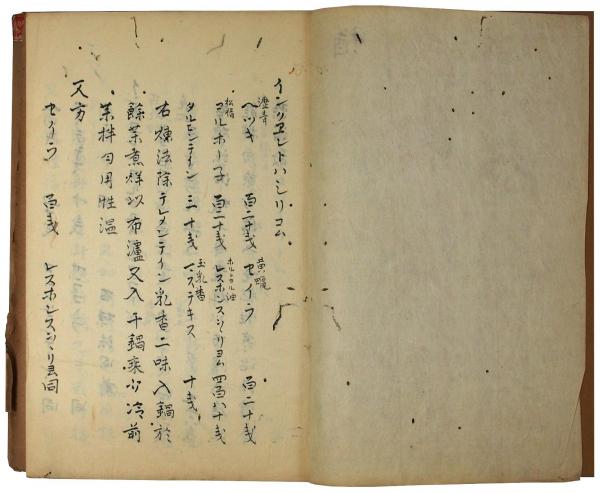 インクヱントハシリコム
瀝青 ヘツキ 百二十戔 黄蠟 セイラ 百二十戔
松脂 コルホー子 百二十戔 ホルトカル油 レスホンスシリヨム 四百八十戔
テルメンテイン 三十戔 玉乳香 マステキス 十戔
右煉法除テレメンテイン乳香二味入鍋於
餘薬煮烊以布濾又入干鍋 少冷前
薬拌匀用性温
又方
セイラ 百戔 レスホンスシリヨ 同